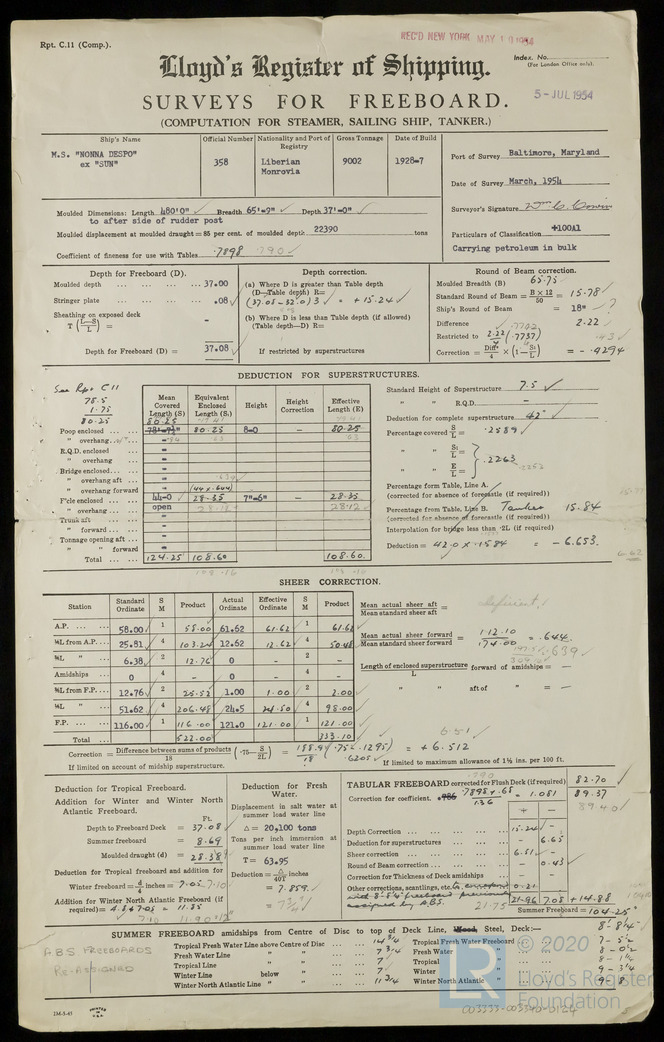 Rpt. C.11 (Comp.).
REC'D NEW YORK MAY 19 1954
Index. No.
(For London Office only).
Lloyd's Register of Shipping.
5 - JUL 1954
SURVEYS FOR FREEBOARD.
(COMPUTATION FOR STEAMER, SAILING SHIP, TANKER.)
Ship's Name Official Number Nationality and Port of Registry Gross Tonnage Date of Build
M.S. "NONNA DESPO" 358 Liberian 9002 1928-7
ex "SUN" Monrovia
Port of Survey Baltimore, Maryland
Date of Survey March, 1954
Surveyor's Signature
Particulars of Classification +100A1
Carrying petroleum in bulk
Moulded Dimensions: Length 480'0" Breadth 65'-9" Depth 37'-0"
to after side of rudder post
Moulded displacement at moulded draught = 85 per cent. of moulded depth 22390 tons
Coefficient of fineness for use with Tables .7898 .790
Depth for Freeboard (D).
Moulded depth 37.00
Stringer plate .08
Sheathing on exposed deck
T (L-S/L) = -
Depth for Freeboard (D) = 37.08
Depth correction.
(a) Where D is greater than Table depth
(D—Table depth) R=
(37.08-32.0)3 = + 15.24
(b) Where D is less than Table depth (if allowed)
(Table depth—D) R=
If restricted by superstructures
Round of Beam correction.
Moulded Breadth (B) 65.75
Standard Round of Beam = B × 12/50 = 15.78
Ship's Round of Beam = 18"
Difference 2.22
Restricted to 2.22/4 (.7737)
Correction = Diff/4 × (1 - S₁/L) = - .4294
DEDUCTION FOR SUPERSTRUCTURES.
See Rpt C 11
78.5
1.75
80.25
Mean Covered Length (S) Equivalent Enclosed Length (S₁) Height Height Correction Effective Length (E)
80.25
Poop enclosed 78'-9½" 80.25 8-0 - 80.25
" overhang
R.Q.D. enclosed
" overhang
Bridge enclosed
" overhang aft
" overhang forward (44 x .644)
F'cle enclosed 44-0 28.35 7"-6" - 28.35
" overhang open
Trunk aft
" forward
Tonnage opening aft
" " forward
Total 124.25 108.60 108.60
Standard Height of Superstructure 7.5
" " R.Q.D. -
Deduction for complete superstructure 42"
Percentage covered S/L = .2589
" " S₁/L =
" " E/L = .2263
Percentage from Table, Line A.
(corrected for absence of forecastle (if required))
Percentage from Table, Line B. Tanker 15.84
(corrected for absence of forecastle (if required))
Interpolation for bridge less than ·2L (if required)
Deduction = 42.0 x .1584 = - 6.653
6.62
SHEER CORRECTION.
Station Standard Ordinate S M Product Actual Ordinate Effective Ordinate S M Product
A.P. 58.00 1 58.00 61.62 61.62 1 61.62
¼L from A.P. 25.81 4 103.24 12.62 12.62 4 50.48
½L " 6.38 2 12.76 0 - 2 -
Amidships 0 4 - 0 - 4 -
½L from F.P. 12.76 2 25.52 1.00 1.00 2 2.00
¼L " 51.62 4 206.48 24.5 24.50 4 98.00
F.P. 116.00 1 116.00 121.0 121.00 1 121.00
Total 522.00 333.10
Mean actual sheer aft / Mean standard sheer aft = deficient
Mean actual sheer forward / Mean standard sheer forward = 112.10/174.00 = .644
.639
Length of enclosed superstructure/L forward of amidships = -
" " aft of " = -
6.51
Correction = Difference between sums of products/18 (·75 - S/2L) = 188.9/18 (.75 - .1295) = + 6.512
.6205
If limited on account of midship superstructure. If limited to maximum allowance of 1½ ins. per 100 ft.
Deduction for Tropical Freeboard.
Addition for Winter and Winter North Atlantic Freeboard.
Ft.
Depth to Freeboard Deck = 37.08
Summer freeboard = 8.69
Moulded draught (d) = 28.39
Deduction for Tropical freeboard and addition for
Winter freeboard = d/4 inches = 7.05 7.10
Addition for Winter North Atlantic Freeboard (if required) =
Deduction for Fresh Water.
Displacement in salt water at summer load water line
Δ = 20,100 tons
Tons per inch immersion at summer load water line
T = 63.95
Deduction = Δ/40T inches
= 7.859
TABULAR FREEBOARD corrected for Flush Deck (if required) 82.70
Correction for coefficient. .7898+.68/1.36 = 1.081 89.37
89.40
+ -
Depth Correction 15.24 -
Deduction for superstructures - 6.65
Sheer correction 6.51 -
Round of Beam correction - 0.43
Correction for Thickness of Deck amidships - -
Other corrections, scantlings, etc. 0.21
with 8-8¼" freeboard previously
assigned by A.B.S. 21.75
21.96 7.08 + 14.88
Summer Freeboard = 104.25
SUMMER FREEBOARD amidships from Centre of Disc to top of Deck Line, Wood, Steel, Deck:— 8'- 8¼"
A B S FREEBOARDS
RE-ASSIGNED
Tropical Fresh Water Line above Centre of Disc 14 ¾
Fresh Water Line " " 7 ¾
Tropical Line " " 7
Winter Line below " 7
Winter North Atlantic Line " " 11 ¾
Tropical Fresh Water Freeboard 7 - 5½
Fresh Water " 8 - 0½
Tropical " 8 - 1¼
Winter " 9 - 3¼
Winter North Atlantic " 9 - 8
© 2020
LR
Lloyd's Register
Foundation
003333-003340-0124
2M-5-47
PRINTED IN U.S.A.